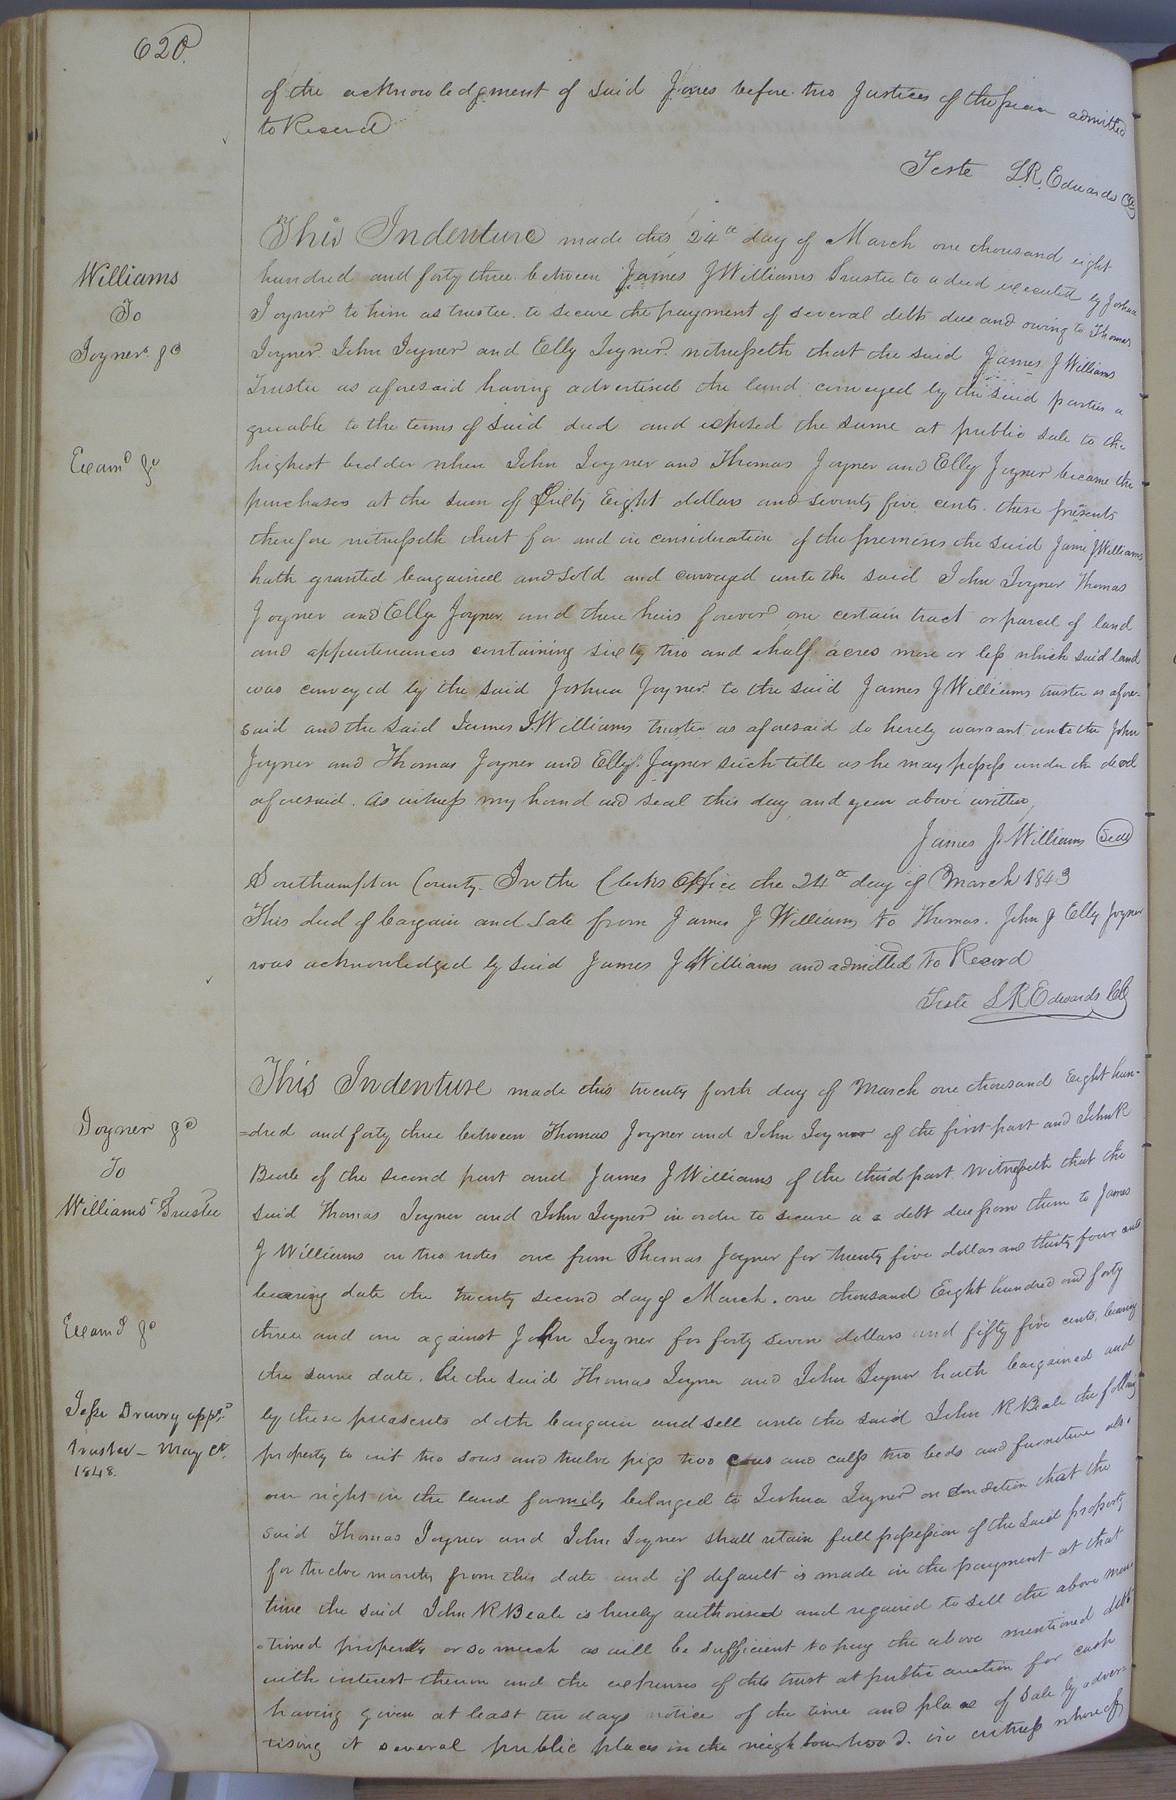 620.
of the acknowledgment of said Jones before two Justices of the peace admitted
to Record
Teste L.R. Edwards Clk
This Indenture made this 24th day of March one thousand eight
Williams
To
Joyner &c
hundred and forty three between James J Williams Trustee to a deed executed by Joshua
Joyner to him as trustee to secure the payment of several debts due and owing to Thomas
Joyner John Joyner and Elly Joyner witnesseth that the said James J Williams
Trustee as aforesaid having advertised the land conveyed by the said parties a
greeable to the terms of said deed and exposed the same at public sale to the
Exam'd &c
highest bidder when John Joyner and Thomas Joyner and Elly Joyner became the
purchases at the sum of Eight dollars and seventy five cents. these presents
therefore witnesseth that for and in consideration of the premises the said Jame J Williams
hath granted bargained and sold and conveyed unto the said John Joyner Thomas
Joyner and Elly Joyner and there heirs forever one certain tract or parcel of land
and appurtenances containing sixty two and a half acres more or less which said land
was conveyed by the said Joshua Joyner to the said James J Williams trustee as afore-
said and the said James J Williams trustee as aforesaid do hereby warrant unto the John
Joyner and Thomas Joyner and Elly Joyner such title as he may possess under the deed
aforesaid. As witness my hand and seal this day and year above written,
James J Williams Seal
Southampton County. In the Clerks Office the 24th day of March 1843
This deed of bargain and sale from James J Williams to Thomas. John & Elly Joyner
was acknowledged by said James J Williams and admitted to Record
Teste L R Edwards Clk
This Indenture made this twenty forth day of March one thousand Eight hun-
Joyner &c
To
Williams' Trustee
=dred and forty three between Thomas Joyner and John Joyner of the first part and John R
Beale of the second part and James J Williams of the third part Witnesseth that the
said Thomas Joyner and John Joyner in order to secure a debt due from them to James
J Williams on two notes one from Thomas Joyner for twenty five dollars and thirty four cents
bearing date the twenty second day of March. one thousand Eight hundred and forty
Exam'd &c
three and one against John Joyner for forty seven dollars and fifty five cents, bearing
the same date. the said Thomas Joyner and John Joyner hath bargained and
Jesse Drewry app'td
trustee - May Ct.
1848.
by these presents doth bargain and sell unto the said John R Beale the following
property to wit two sows and twelve pigs two cows and calfs two beds and furniture also
our right in the land formily belonged to Joshua Joyner on condition that the
said Thomas Joyner and John Joyner shall retain full possession of the said property
for twelve months from this date and if default is made in the payment at that
time the said John R Beale is hereby authorised and required to sell the above men
tioned property or so much as will be sufficient to pay the above mentioned debt
with interest thereon and the expenses of this trust at public auction for cash
having given at least ten days notice of the time and place of sale by adver=
tising it several public places in the neighbourhood. in witness whereof